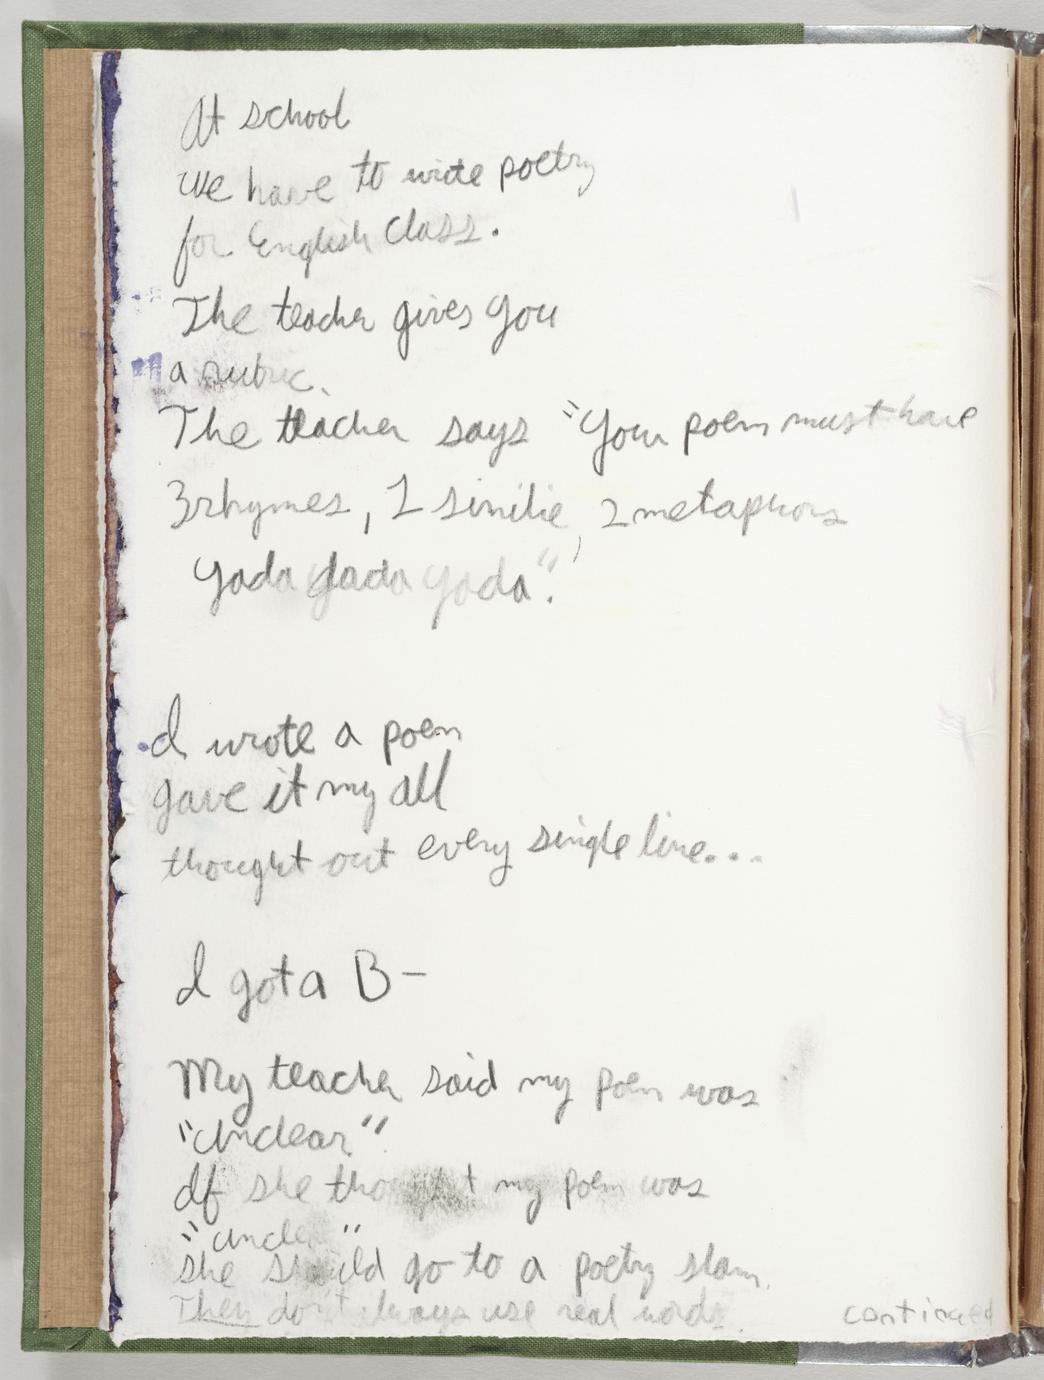 At school
We have to write poetry
for English class.
The teacher gives you
a rubric.
The teacher says "Your poem must have
3 rhymes, 1 similie, 2 metaphors
yada yada yada".
I wrote a poem
gave it my all
thought out every single line...
I got a B-
My teacher said my poem was
"unclear".
If she thought my poem was
"unclear"
she should go to a poetry slam.
They don't always use real words.
continued